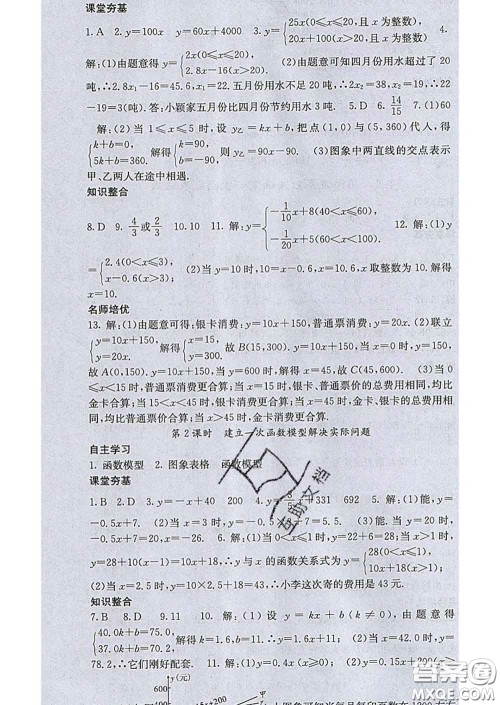 课堂夯基
1. A　2. y=100x　y=60x+4000　3. y={25x(0≤x≤20,且 x 为整数), 20x+100(x>20,且 x 为整数)　4.
解:(1)由题意得 y={2x(0≤x≤15), 2.8x-16(x>15).　(2)由题意可知四月份用水超过了 20
吨,∴2.8x-16=45.6. 五月份用水不足 20 吨,∴2x₂=38,x₂=19. ∴22
-19=3(吨). 答:小颖家五月份比四月份节约用水 3 吨.　5. D　6. 14/15　7. (1)60
解:(2)当 1≤x≤5 时,设 y乙=kx+b,把点(1,0)与(5,360)代入,得
{k+b=0, 5k+b=360. 解得{k=90, b=-90. 则 y乙=90x-90.　(3)图象中两直线的交点表示
甲、乙两人在途中相遇.
知识整合
8. D　9. 4/3或2/3　10. 10　11. 解:y={-1/10x+8(40<x≤60), -1/20x+5(60<x<100).　12. 解:(1)y
={2.4(0<x≤3), x-0.6(x>3);　(2)当 y=10 时,10=x-0.6,x=10.6,x 取整数为 10. 解得
x=10.
名师培优
13. 解:(1)由题意可得:银卡消费:y=10x+150,普通票消费:y=20x.　(2)联立
{y=10x+150, y=20x, 解得{x=15, y=300, 故 B(15,300). 当 x=0 时,y=10x+150=150,
故 A(0,150). 当 y=600 时,解得 x=45,故 C(45,600).　(3)当 0
≤x<15 时,普通票消费更合算;当 x=15 时,银卡、普通票的总费用相同,均比
金卡合算;当 15<x<45 时,银卡消费更合算;当 x=45 时,金卡、银卡的总费用相同,均比
普通票合算;当 x>45 时,金卡消费更合算.
第 2 课时　建立一次函数模型解决实际问题
自主学习
1. 函数模型　2. 图象表格　函数模型
课堂夯基
1. B　2. D　3. y=-x+40　200　4. y=x+331　692　5. (1)能,y=
-0.5x+7.　(2)当 x=3 时,y=-0.5×3+7=5.5.　(3)能. 当 y=20 时,
-0.5x+7=20,∴x=-26.　6. 解:(1)当 0<x≤1 时,y=28;当 x>1 时,
y=28+10(x-1)=10x+18,∴y 与 x 的函数关系式为 y={28(0<x≤1), 10x+18(x>1);
(2)当 x=2.5 时,y=10×2.5+18=43,∴小李这次寄的费用是 43 元.
知识整合
7. B　8. D　9. 11　10. 解:(1)设 y=kx+b(k≠0),由题意得
{40.0k+b=75.0, 37.0k+b=70.2, 解得{k=1.6, b=11. ∴y=1.6x+11;　(2)当 x=42 时,y=
78.2,∴它们刚好配套.　11. 解:(1)y=0.4x(x≥0);　(2)y=0.15x+200(x≥
y(元)
600
400
甲
互助文档
答案圈
MXQE.COM